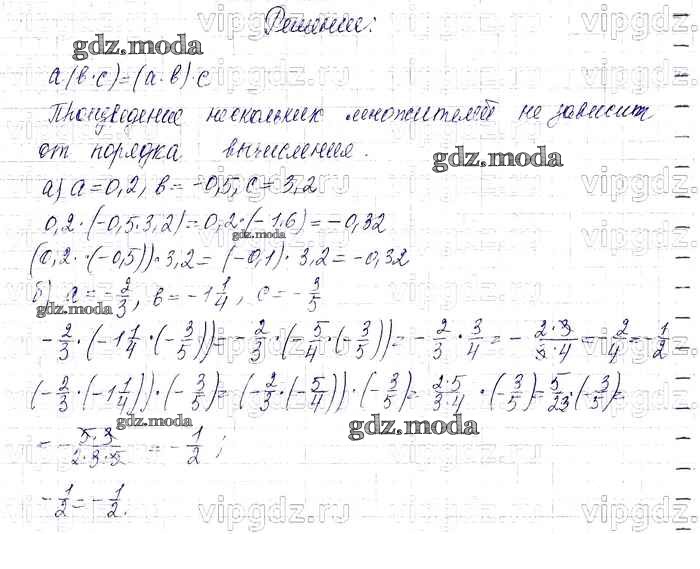 Решение:
gdz.moda
a·(в·c)=(a·в)·c
Произведение нескольких множителей не зависит
от порядка вычисления.
gdz.moda
а) a=0,2, в=-0,5, c=3,2
0,2·(-0,5·3,2)=0,2·(-1,6)=-0,32
gdz.moda
(0,2·(-0,5))·3,2=(-0,1)·3,2=-0,32
б) a=-2/3, в=-1 1/4, c=-3/5
gdz.moda
-2/3·(-1 1/4·(-3/5))=-2/3·(-5/4·(-3/5))=-2/3·3/4=-2·3/3·4=-2/4=-1/2
(-2/3·(-1 1/4))·(-3/5)=(-2/3·(-5/4))·(-3/5)=2·5/3·4·(-3/5)=5/2·3·(-3/5)=
gdz.moda
gdz.moda
=-5·3/2·3·5=-1/2;
-1/2=-1/2.
vipgdz.ru vipgdz.ru vipgdz.ru
vipgdz.ru vipgdz.ru vipgdz.ru
vipgdz.ru vipgdz.ru vipgdz.ru
vipgdz.ru vipgdz.ru vipgdz.ru
vipgdz.ru vipgdz.ru vipgdz.ru